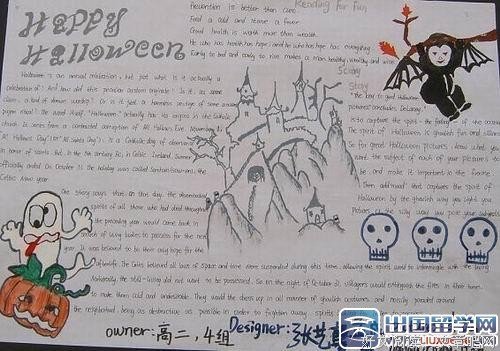 Happy
Halloween
Prevention is better than cure.
Reading for Fun
Feed a cold and starve a fever
Good health is worth more than wealth
He who has health has hope; and he who has hope has everything.
Early to bed and early to rise makes a man healthy, wealthy and wise
Scary
Story
Halloween is an annual celebration, but just what is it actually a
celebration of? And how did this peculiar custom originate? Is it, as some
claim, a kind of demon worship? Or is it just a harmless vestige of some ancient
pagan ritual? The word itself, "Halloween," actually has its origins in the Catholic
Church. It comes from a contracted corruption of All Hallows Eve. November 1,
"All Hallows Day" (or "All Saints Day"), is a Catholic day of observance
in honor of saints. But, in the 5th century BC, in Celtic Ireland, summer
officially ended on October 31. The holiday was called Samhain (sow-en), the
Celtic New year.
One story says that, on that day, the disembodied
spirits of all those who had died throughout
the preceding year would come back in
search of living bodies to possess for the next
year. It was believed to be their only hope for the
afterlife. The Celts believed all laws of space and time were suspended during this time, allowing the spirit world to intermingle with the living
Naturally, the still-living did not want to be possessed. So on the night of October 31, villagers would extinguish the fires in their homes,
to make them cold and undesirable. They would then dress up in all manner of ghoulish costumes and noisily paraded around
the neighborhood, being as destructive as possible in order to frighten away spirits
"The key to good Halloween
pictures" concludes DeLaney,
"is to capture the spirit - the feeling - of the occasion
The spirit of Halloween is ghoulish fun and
So for great Halloween pictures, know what you
want the subject of each of your pictures to
be, and make it important in the frame.
Then add mood that captures the spirit of
Halloween by the ghoulish way you light your
Pictures or the scary way you pose your subjects
owner:高二,4组
Designer:张芝
出国留学网